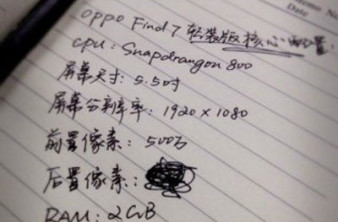 oppo Find 7 轻装版核心配置:
Date
cpu: Snapdrangon 800
屏幕尺寸: 5.5吋
屏幕分辨率: 1920 × 1080
前置像素: 500万
后置像素:
RAM: 2GB